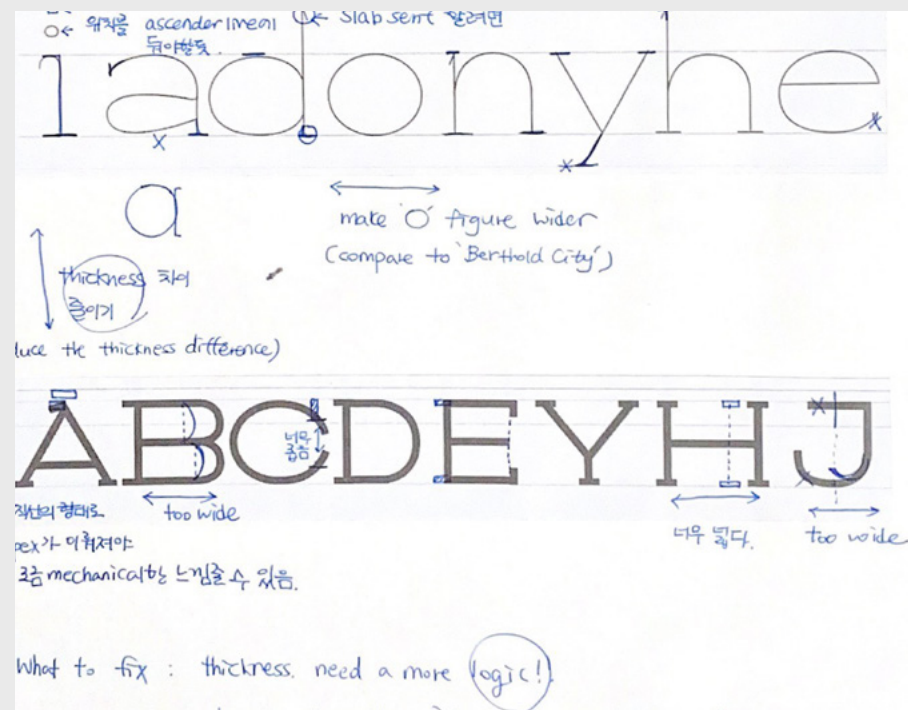 위치를 ascender line에
둬야할듯.
slab serif 할려면
l a d o n y h e
a
make 'O' figure wider
(compare to 'Berthold City')
thickness 차이
줄이기
duce the thickness difference)
A B C D E Y H J
너무
좁음
too wide
너무 넓다.
too wide
형태로
pex가 이뤄져야
조금 mechanical한 느낌줄 수 있음.
What to fix : thickness. need a more logic!